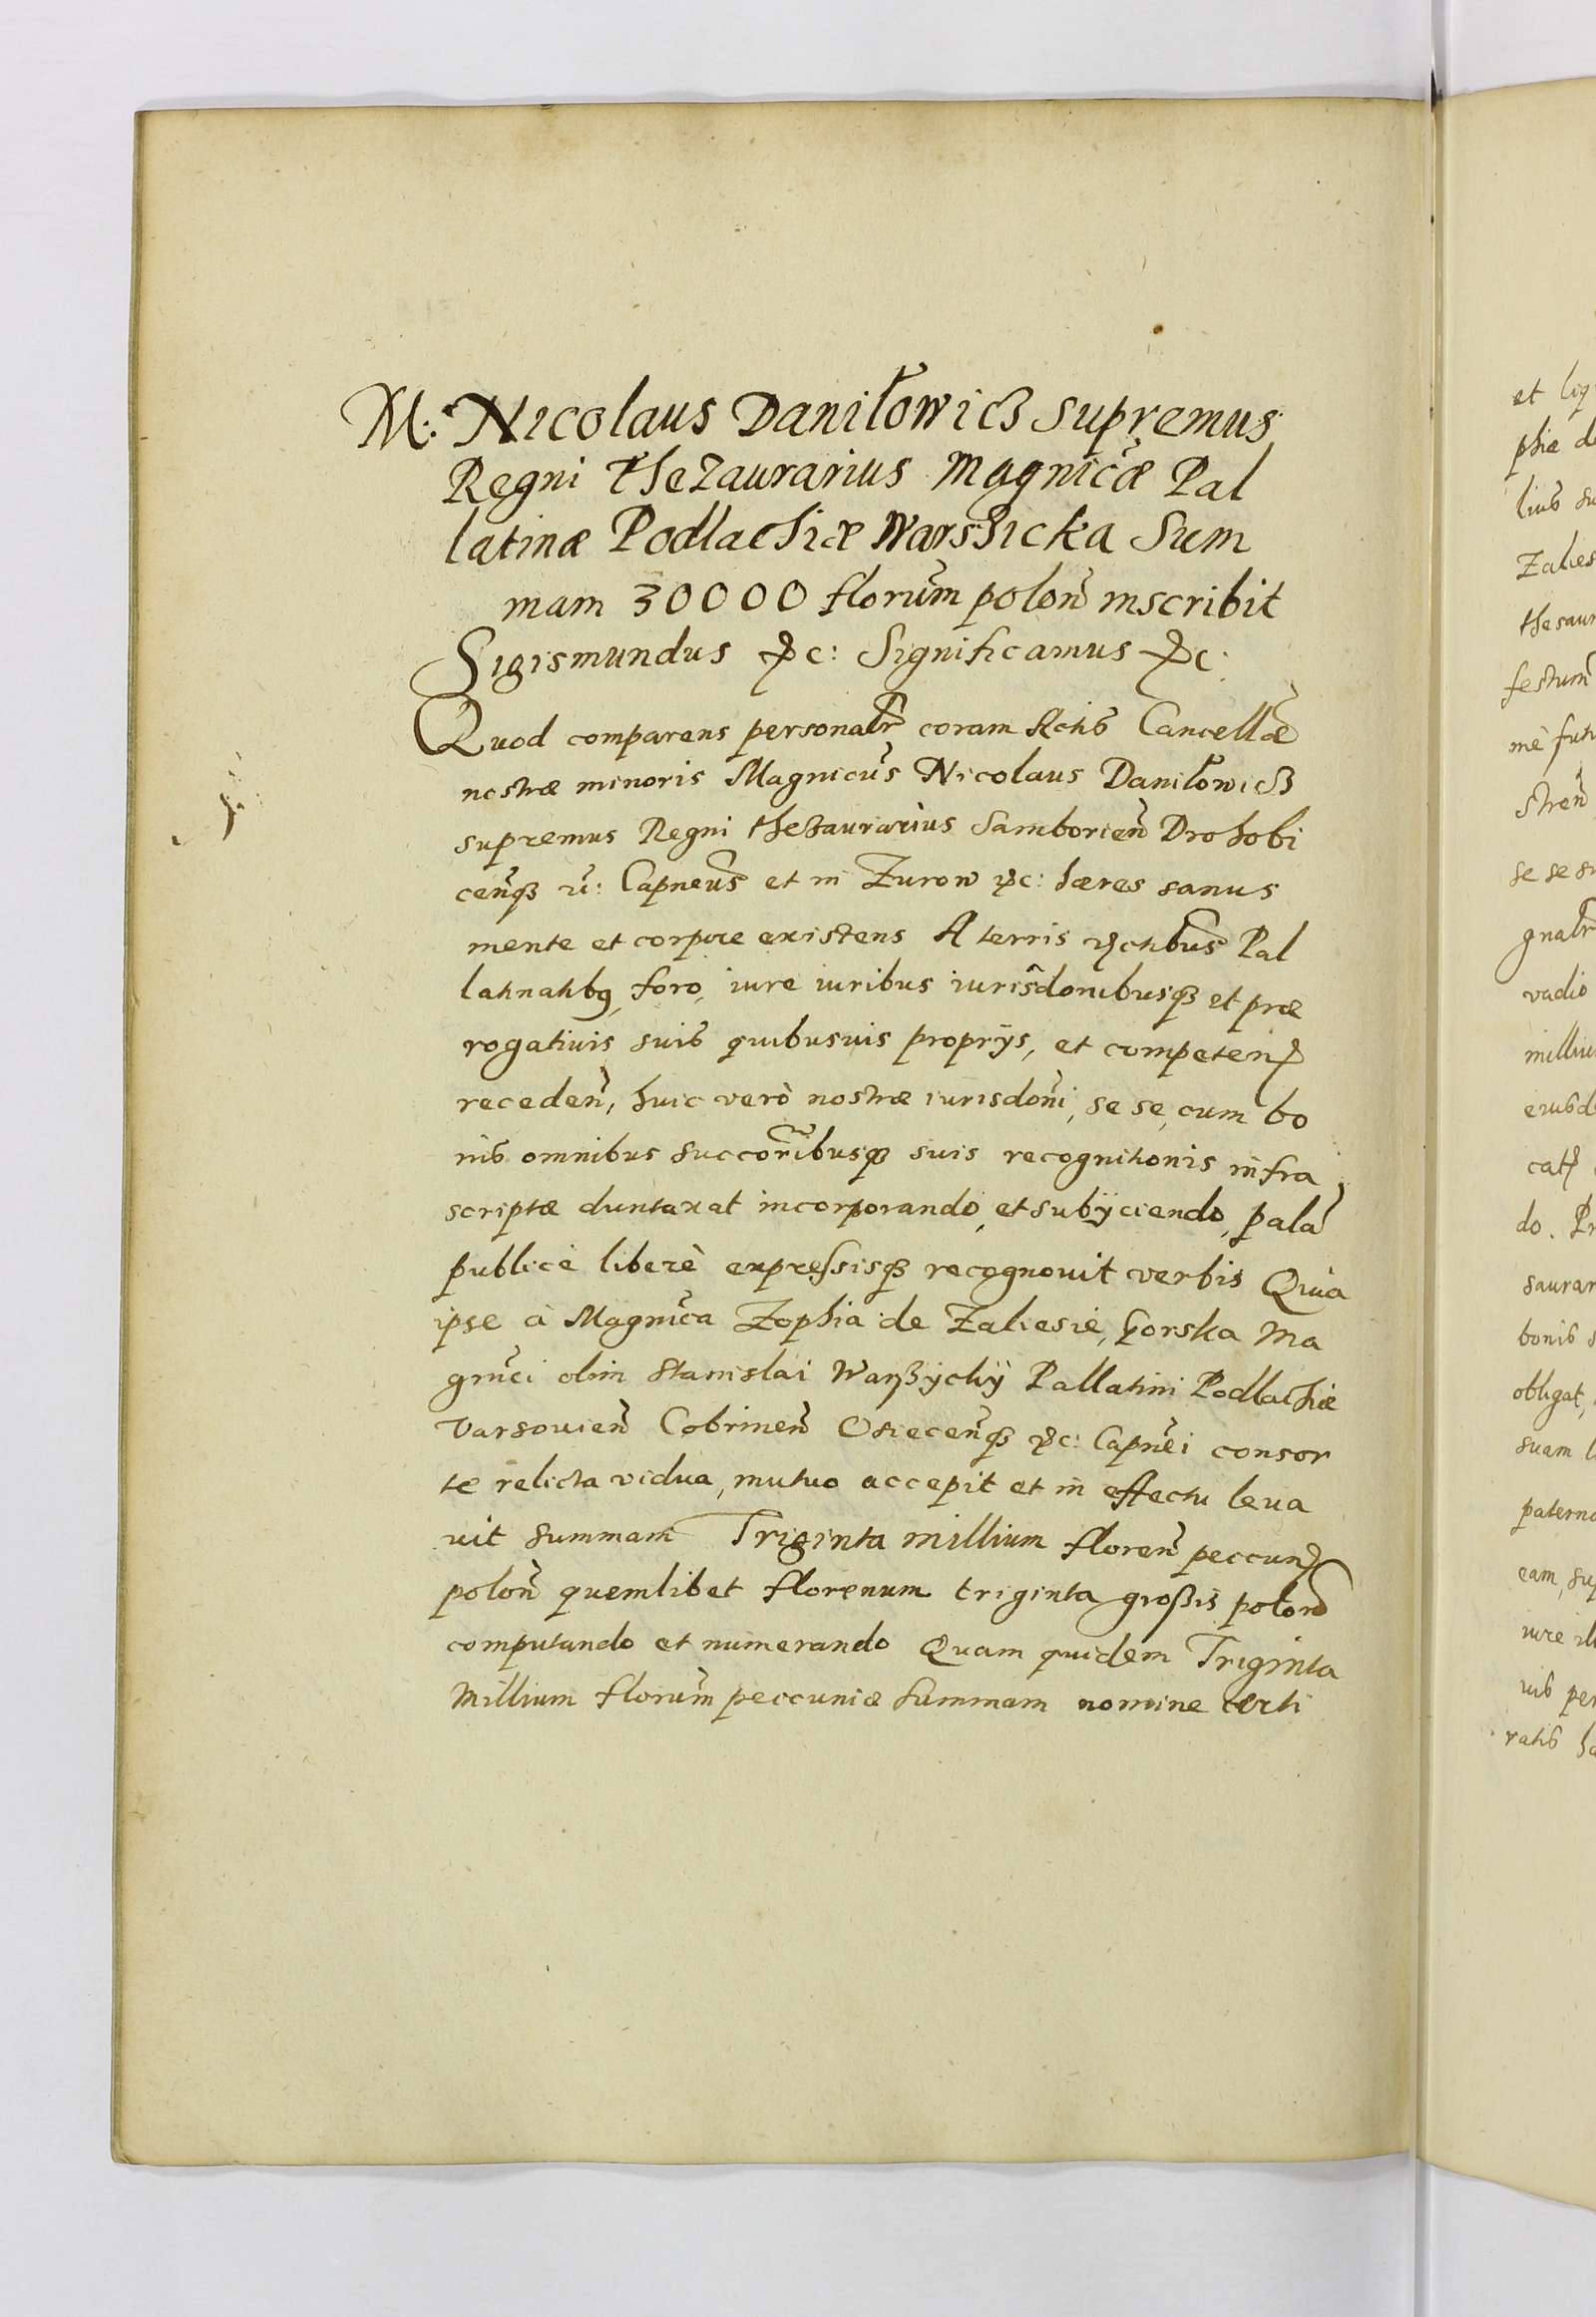 M: Nicolaus Daniłowicz supremus
Regni thezaurarius Magnicæ Pal
latinæ Podlachiæ Warszicka Sum
mam 30000 florum polon inscribit
Sigismundus &c: Significamus &c.
Quod comparens personalr coram Actis Cancellæ
nostræ minoris Magnicus Nicolaus Daniłowicz
supremus Regni thezaurarius Samborien Drohobi
cenqz &: Capneus et in Zurow &c: hæres sanus
mente et corpore existens A terris &ctibus Pal
latinatibq, foro, iure iuribus iurisdonibusqz et præ
rogativis suis quibusuis proprijs, et competen
receden, huic verò nostræ iurisdoni, se se, cum bo
nis omnibus succoribusqz suis recognitionis infra
scriptæ duntaxat incorporando, et subijciendo, pala
publicè liberè expressisqz recognouit verbis Quia
ipse à Magnica Zophia de Zaliesie, Gorska Ma
gnici olim Stanislai Warszyckij Pallatini Podlachiæ
Varsouien Cobrinen Osiecenqz &c: Capnei consor
te relicta vidua, mutuo accepit et in effectu leua
uit summam Triginta millium floren peccun
polon quemlibet florenum triginta großis polon
computando et numerando Quam quidem Triginta
Millium florum peccuniæ summam nomine certi
et liq
phiæ de
lius su
Zalies
thesaur
festum
mè futu
stren
se se su
gnalr
vadio
milliu
eiusd
do. Pr
saurar
bonis s
obligat,
suam l
paterno
eam, sup
iure ill
uis per
ratis ha